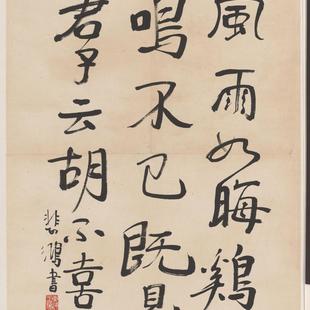 風雨如晦鷄
鳴不已既見
君子云胡不喜
悲鴻書